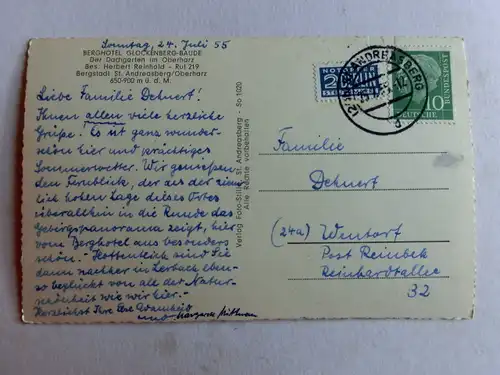 Sonntag, 24. Juli 55
BERGHOTEL GLOCKENBERG-BAUDE
Der Dachgarten im Oberharz
Bes. Herbert Reinhold - Ruf 219
Bergstadt St. Andreasberg/Oberharz
650-900 m ü. d. M.
Liebe Familie Dehnert!
Ihnen allen viele herzliche
Grüße. Es ist ganz wunder-
schön hier und prächtiges
Sommerwetter. Wir genießen
den Fernblick, der aus der ziem-
lich hohen Lage dieses Ortes
überallhin in die Runde das
Gebirgspanorama zeigt, hier
vom Berghotel aus besonders
schön. - Hoffentlich sind Sie
dann nachher in Lerbach eben-
so beglückt von all der Natur-
schönheit wie wir hier. -
Herzlichst Ihre
und Margarete
Verlag Foto-
St. Andreasberg - So 1020
Alle Rechte vorbehalten
NOTOPFER
2 BERLIN
STEUERMARKE
ANDREASBERG
d
10
DEUTSCHE
BUNDESPOST
Familie
Dehnert
(24a) Wentorf
Post Reinbek
Reinhardtallee
32